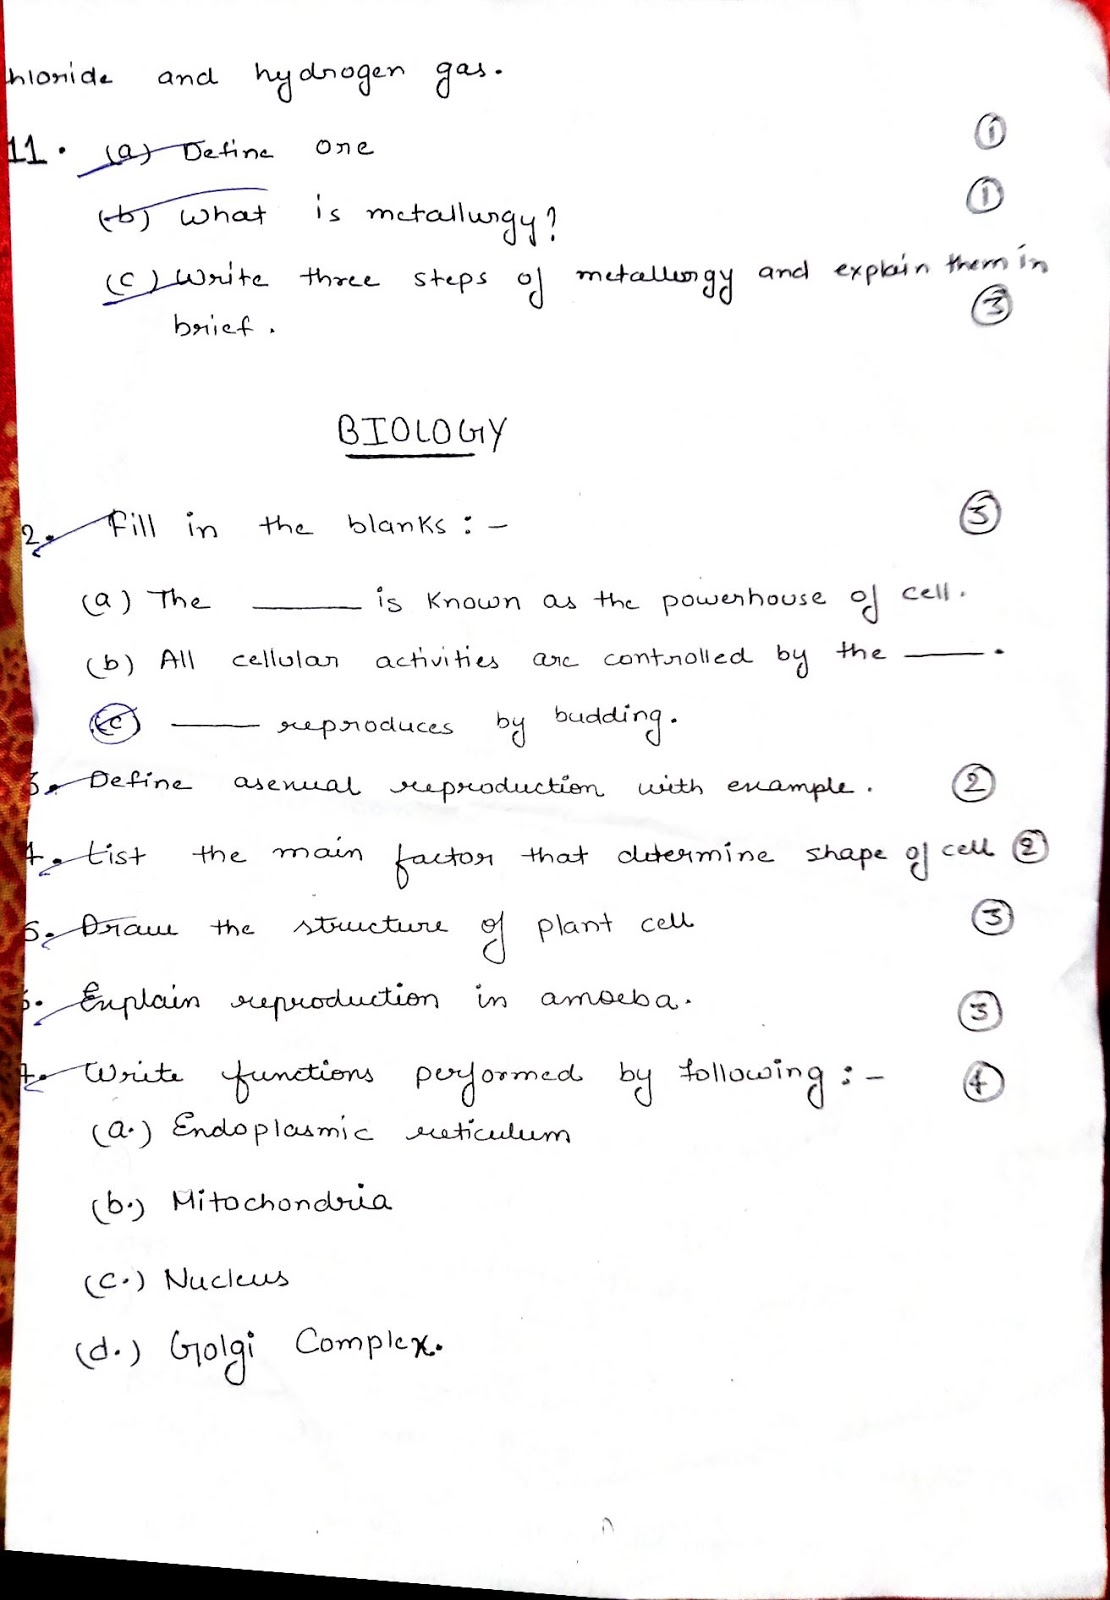 hloride and hydrogen gas.
11. (a) Define ore ①
(b) What is metallurgy? ①
(c) Write three steps of metallurgy and explain them in
brief. ③
BIOLOGY
2. Fill in the blanks :- ③
(a) The ______ is known as the powerhouse of cell.
(b) All cellular activities are controlled by the ______.
(c) ______ reproduces by budding.
3. Define asexual reproduction with example. ②
4. List the main factor that determine shape of cell ②
5. Draw the structure of plant cell ③
6. Explain reproduction in amoeba. ③
7. Write functions performed by following :- ④
(a.) Endoplasmic reticulum
(b.) Mitochondria
(c.) Nucleus
(d.) Golgi Complex.